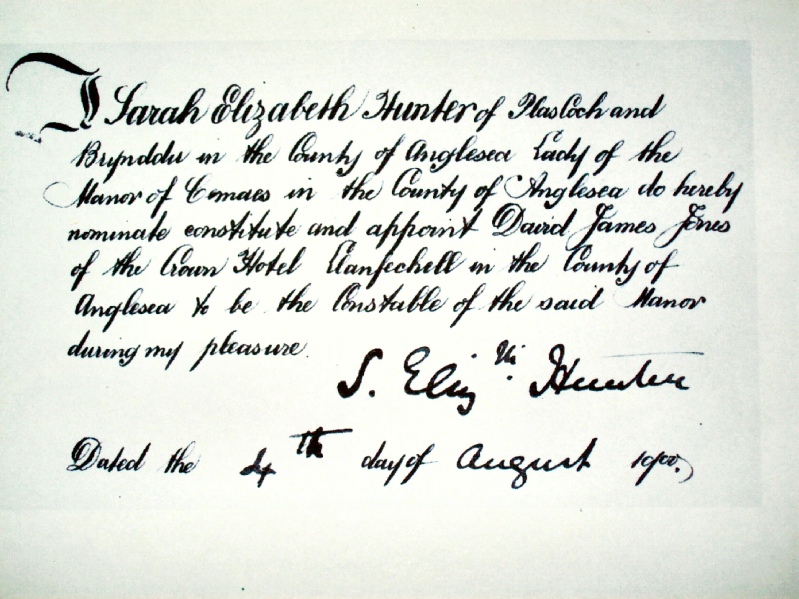 I Sarah Elizabeth Hunter of Plas Coch and
Brynddu in the County of Anglesea Lady of the
Manor of Cemaes in the County of Anglesea do hereby
nominate constitute and appoint David James Jones
of the Crown Hotel Llanfechell in the County of
Anglesea to be the Constable of the said Manor
during my pleasure.
S. Eliz.th Hunter
Dated the 4th day of August 1900.